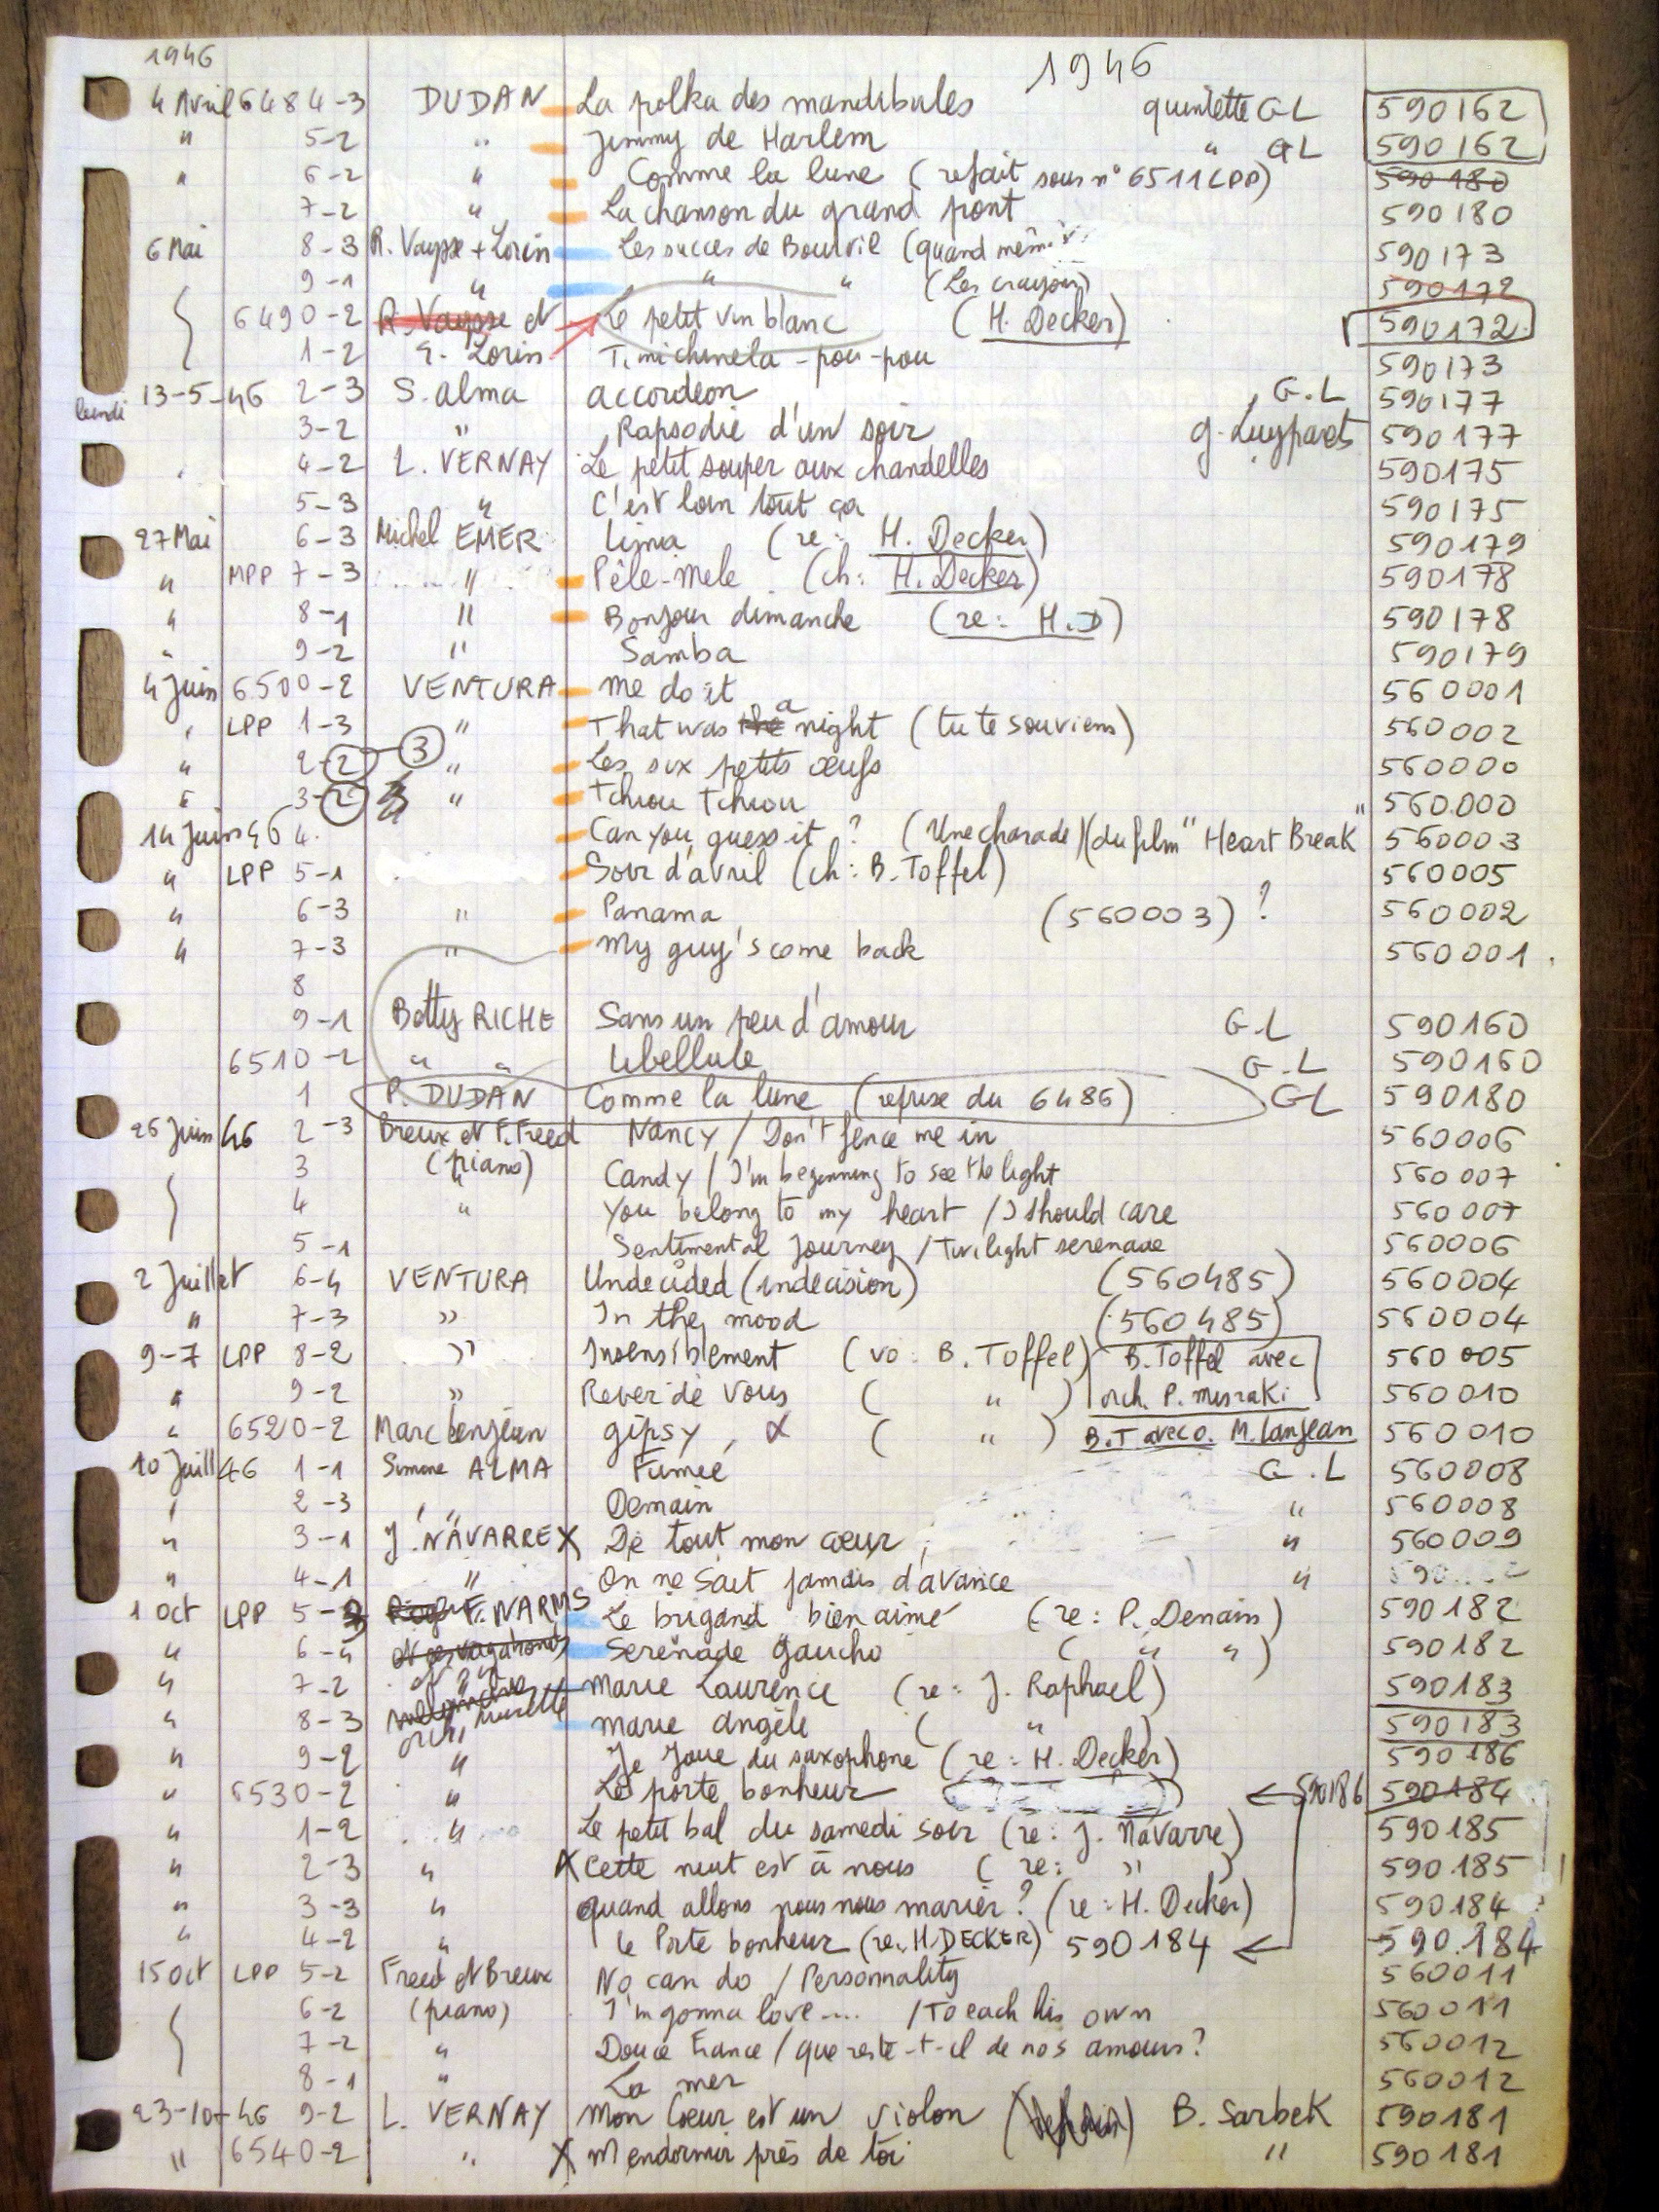 1946 1946
4 Avril 6484-3 DUDAN La polka des mandibules quintette GL 590162
" 5-2 " Jimmy de Harlem " GL 590162
" 6-2 " Comme la lune (refait sous n° 6511 LPP) 590180
7-2 " La chanson du grand pont 590180
6 Mai 8-3 R. Vaysse + Lorin Les succes de Bourvil (quand même 590173
9-1 " " " (Les crayons) 590172
6490-2 R. Vaysse et Le petit vin blanc (H. Decker) 590172
1-2 Lorin Timichinela-pou-pou 590173
13-5-46 2-3 S. alma accordeon G.L 590177
lundi 3-2 " Rapsodie d'un soir g. Luypaerts 590177
4-2 L. VERNAY Le petit souper aux chandelles 590175
5-3 " C'est loin tout ça 590175
27 Mai 6-3 Michel EMER Lijna (re: H. Decker) 590179
" MPP 7-3 " Pêle-mele (ch: H. Decker) 590178
" 8-1 " Bonjour dimanche (re: H.D) 590178
" 9-2 " Samba 590179
4 Juin 6500-2 VENTURA me do it 560001
" LPP 1-3 " That was the a night (tu te souviens) 560002
" 2-2 3 " Les six petits œufs 560000
" 3-2 " Tchiou Tchiou 560.000
14 Juin 46 4. Can you guess it ? (Une charade) (du film "Heart Break" 560003
" LPP 5-1 Soir d'avril (ch: B. Toffel) 560005
" 6-3 " Panama (560003) ? 560002
" 7-3 " My guy's come back 560001.
8
9-1 Betty RICHE Sans un peu d'amour G.L 590160
6510-2 " " Libellule G.L 590160
1 P. DUDAN Comme la lune (reprise du 6486) GL 590180
26 Juin 46 2-3 Breux et F. Freed Nancy / Don't fence me in 560006
3 (piano) Candy / I'm beginning to see the light 560007
4 " You belong to my heart / I should care 560007
5-1 Sentimental Journey / Twilight serenade 560006
2 Juillet 6-4 VENTURA Undecided (indecision) (560485) 560004
" 7-3 " In the mood (560485) 560004
9-7 LPP 8-2 " Insensiblement (vo: B. Toffel) B. Toffel avec 560005
" 9-2 " Rever de vous ( " ) orch. P. misraki 560010
" 6520-2 Marc Lanjean gipsy, ( " ) B.T avec o. M. Lanjean 560010
10 Juill 46 1-1 Simone ALMA Fumée G.L 560008
" 2-3 " Demain " 560008
" 3-1 J. NAVARRE X De tout mon cœur " 560009
" 4-1 " On ne sait jamais d'avance "
1 Oct LPP 5-3 E. NARMS Le brigand bien aimé (re: P. Denain) 590182
" 6-4 et ses vagabonds Serenade gaucho ( " " ) 590182
" 7-2 " marie Laurence (re: J. Raphael) 590183
" 8-3 orch. musette marie angèle ( " ) 590183
" 9-2 " Je Joue du saxophone (re: H. Decker) 590186
" 6530-2 " Le porte bonheur ← 590186 590184
" 1-2 " Le petit bal du samedi soir (re: J. Navarre) 590185
" 2-3 " X Cette nuit est à nous (re: " ) 590185
" 3-3 " quand allons nous nous marier? (re: H. Decker) 590184
" 4-2 " Le Porte bonheur (re: H. DECKER) 590184 ← 590.184
15 Oct LPP 5-2 Freed et Breux No can do / Personnality 560011
6-2 (piano) I'm gonna love.... / To each his own 560011
7-2 " Douce France / que reste-t-il de nos amours? 560012
8-1 " La mer 560012
23-10-46 9-2 L. VERNAY Mon Cœur est un violon B. Sarbek 590181
" 6540-2 " X M'endormir près de toi " 590181